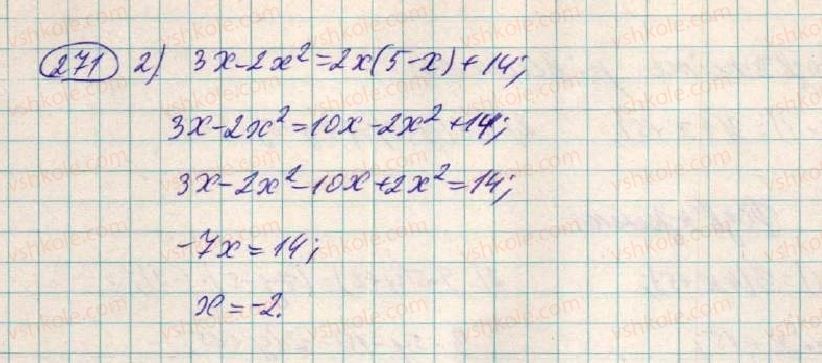 271 2) 3x-2x²=2x(5-x)+14;
3x-2x²=10x-2x²+14;
3x-2x²-10x+2x²=14;
-7x=14;
x=-2.